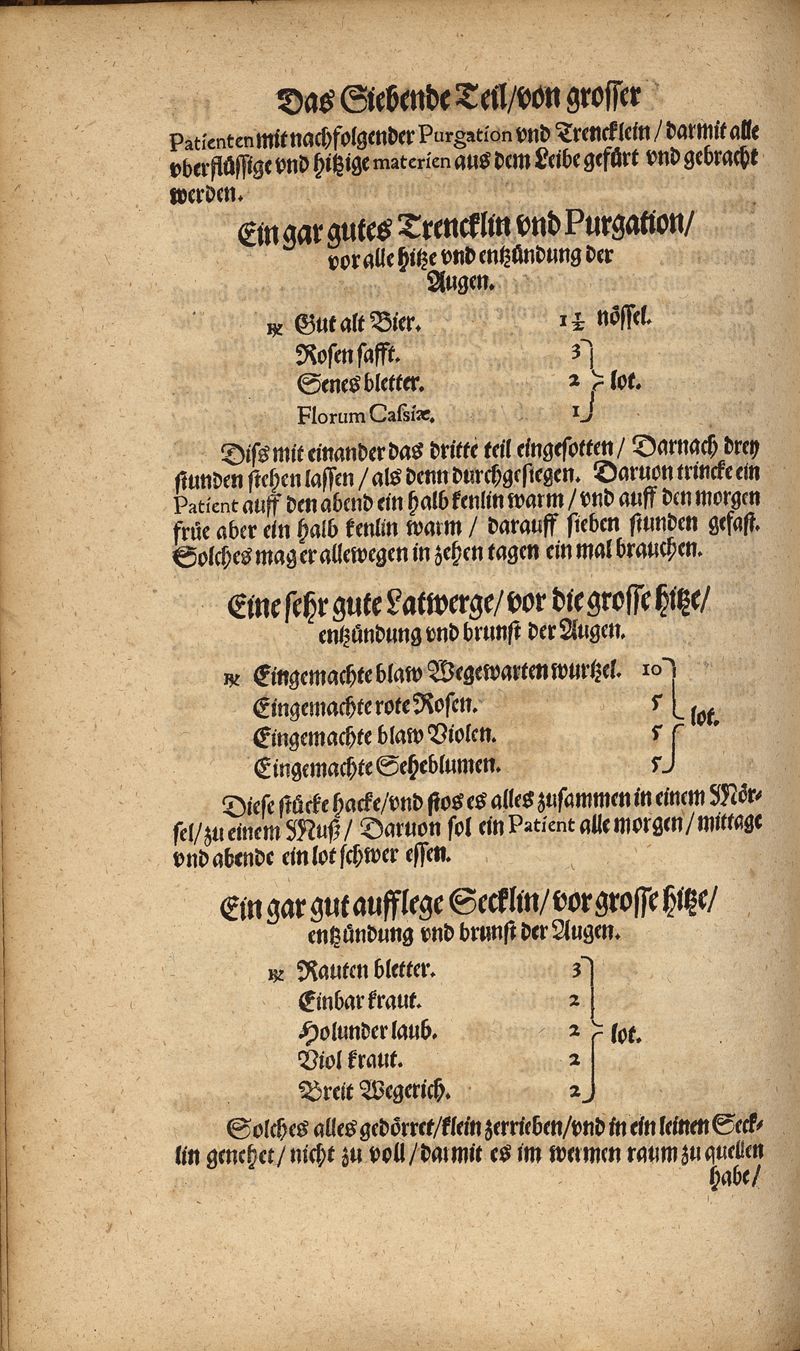 Das Siebende Teil/von grosser
Patienten mit nachfolgender Purgation vnd Trencklein / darmit alle
vberflüssige vnd hitzige materien aus dem Leibe gefürt vnd gebracht
werden.
Ein gar gutes Trencklin vnd Purgation/
vor alle hitze vnd entzündung der
Augen.
℞ Gut alt Bier. 1½ nössel.
Rosen safft. 3
Senes bletter. 2 } lot.
Florum Cassiæ. 1
Diss mit einander das dritte teil eingesotten / Darnach drey
stunden stehen lassen / als denn durchgesiegen. Daruon trincke ein
Patient auff den abend ein halb kenlin warm / vnd auff den morgen
früe aber ein halb kenlin warm / darauff sieben stunden gefast.
Solches mag er allewegen in zehen tagen ein mal brauchen.
Eine sehr gute Latwerge/vor die grosse hitze/
entzündung vnd brunst der Augen.
℞ Eingemachte blaw Wegewarten wurtzel. 10
Eingemachte rote Rosen. 5
Eingemachte blaw Violen. 5 } lot.
Eingemachte Seheblumen. 5
Diese stücke hacke/vnd stos es alles zusammen in einem Mör-
sel/zu einem Muß / Daruon sol ein Patient alle morgen / mittage
vnd abende ein lot schwer essen.
Ein gar gut aufflege Secklin/vor grosse hitze/
entzündung vnd brunst der Augen.
℞ Rauten bletter. 3
Einbar kraut. 2
Holunder laub. 2 } lot.
Viol kraut. 2
Breit Wegerich. 2
Solches alles gedörret/klein zerrieben/vnd in ein leinen Seck-
lin genehet / nicht zu voll / darmit es im wermen raum zu quellen
habe/